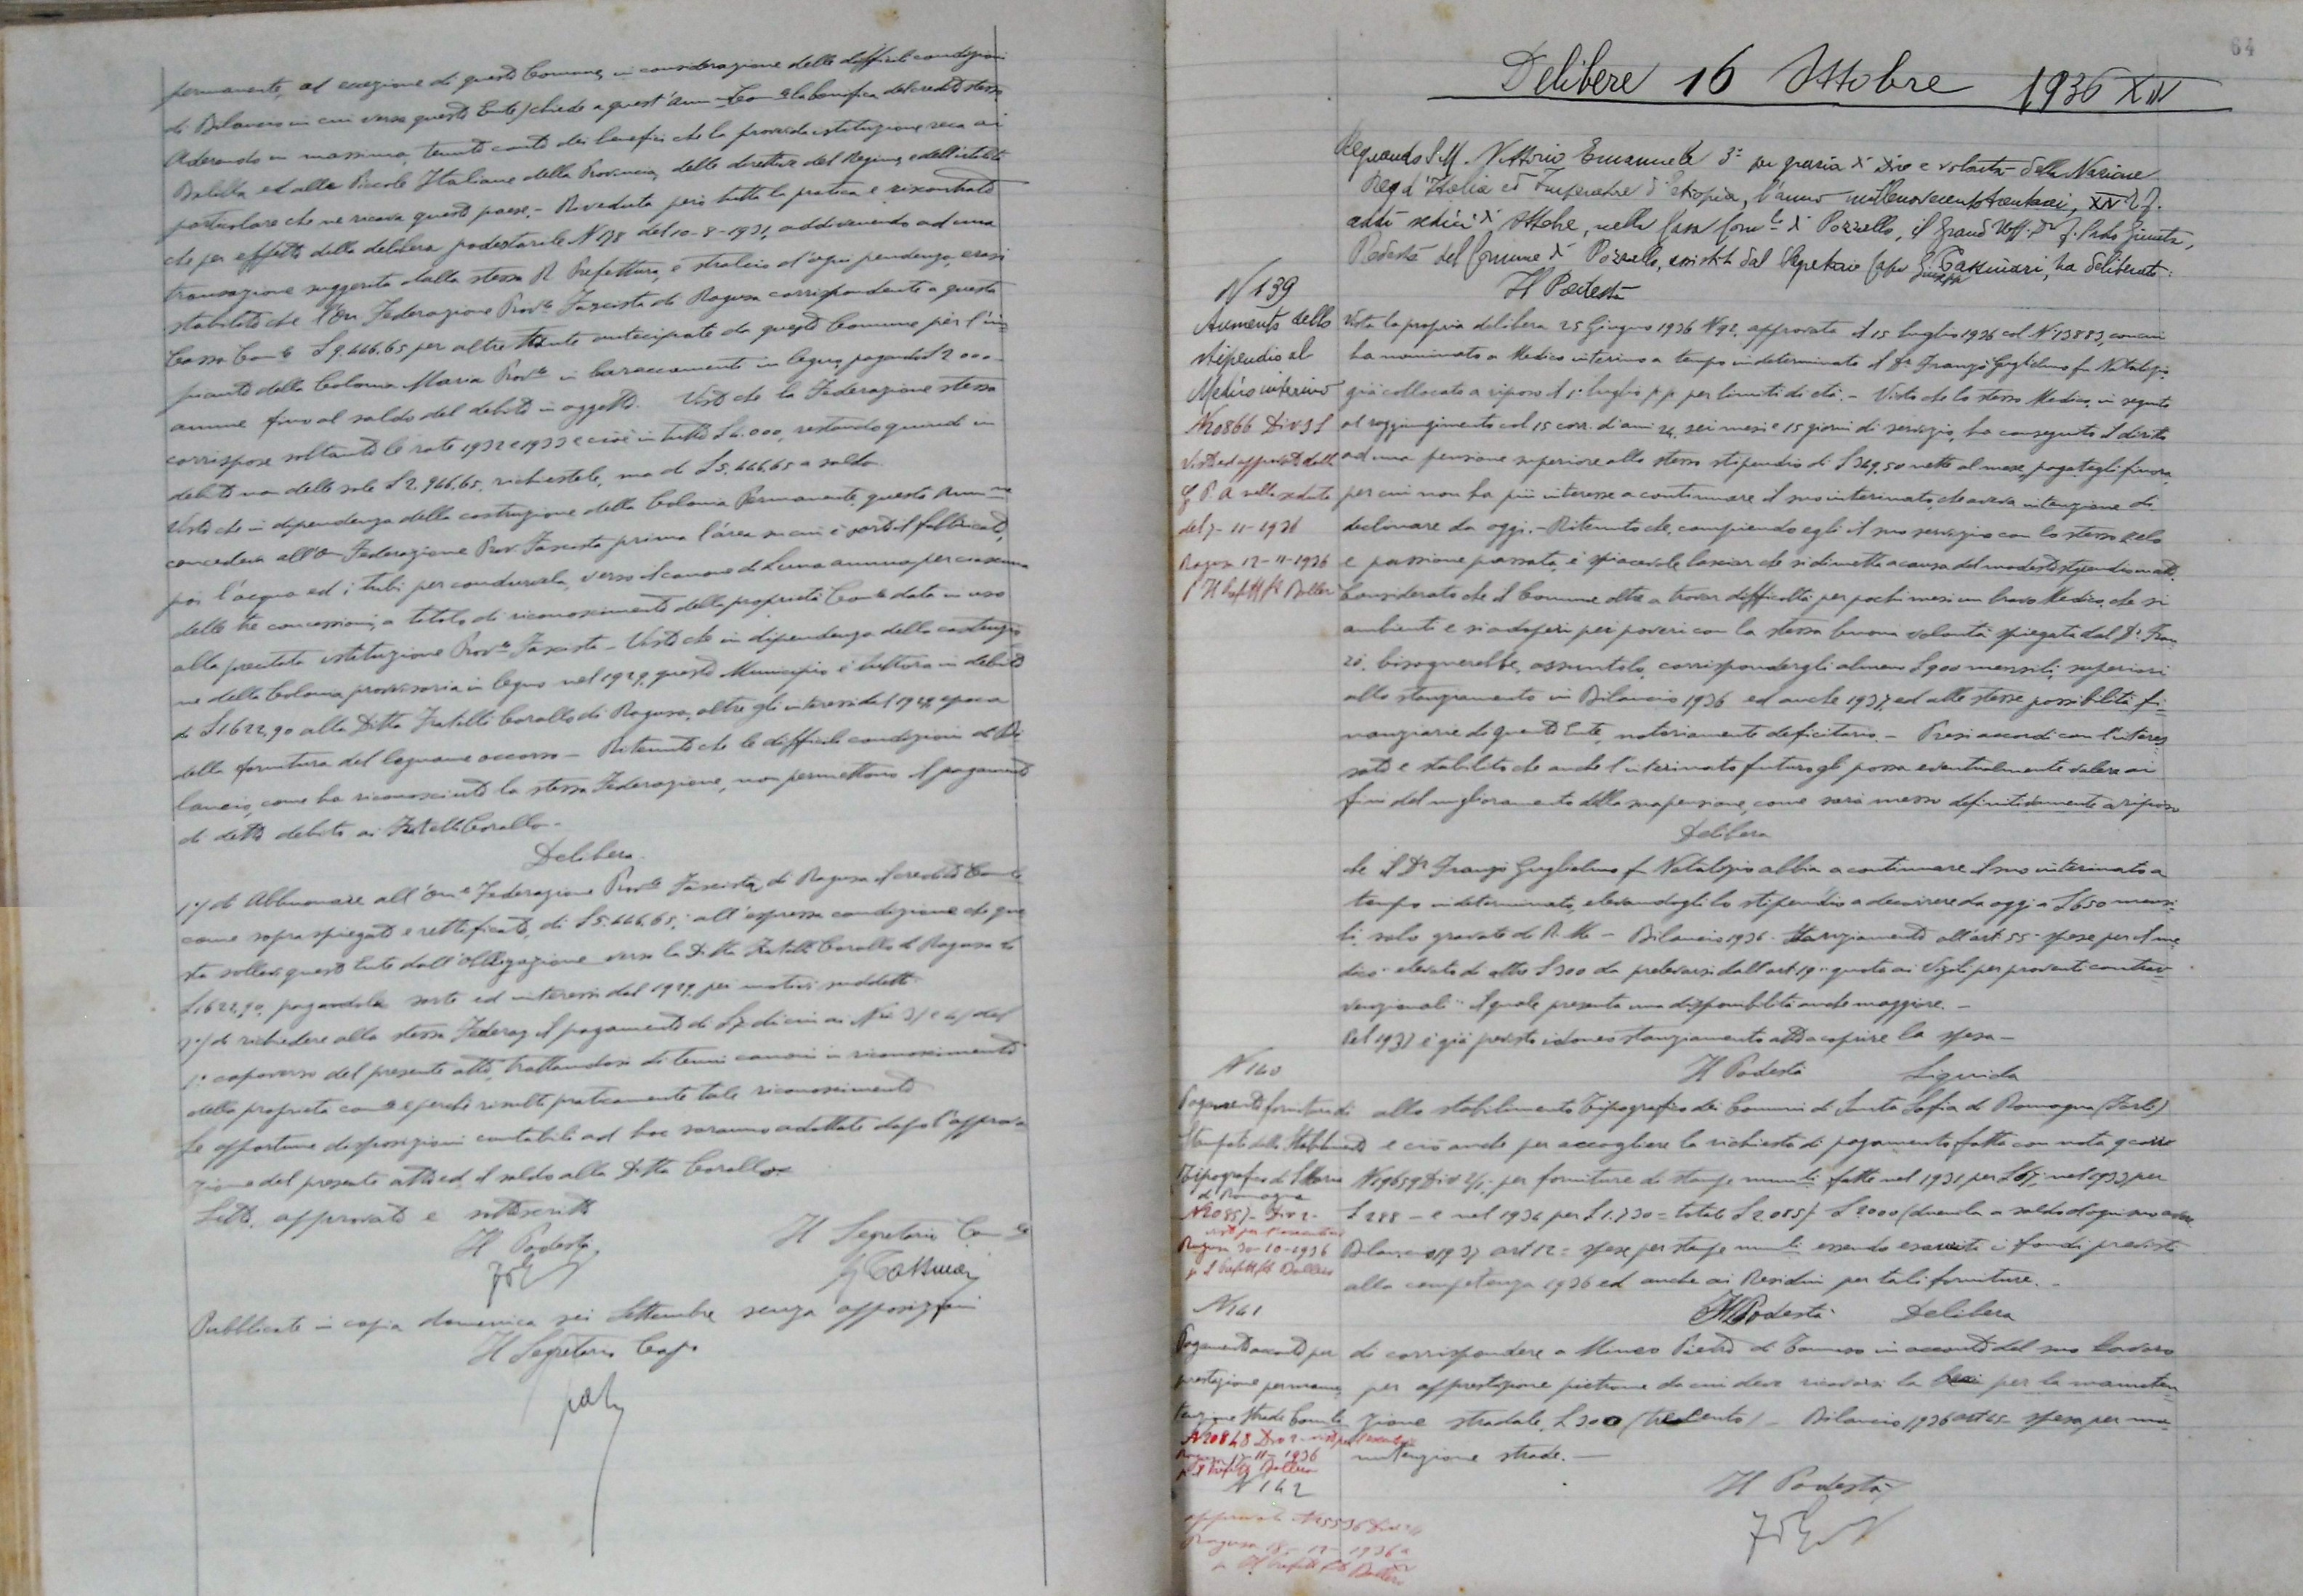 permanente, ad eccezione di questo Comune, in considerazione delle difficili condizioni
di Bilancio in cui versa questo Ente, chiede a quest'Amm. Com.le la bonifica del credito stesso.
Aderendo in massima, tenuto conto dei benefici che la provvida istituzione reca ai
Balilla ed alle Piccole Italiane della Provincia, delle direttive del Regime, e dell'utilità
particolare che ne ricava questo paese. - Riveduta però tutta la pratica e riscontrato
che per effetto della delibera podestarile N 178 del 10-8-1931, addivenendo ad una
transazione suggerita dalla stessa R Prefettura, e stralcio d'ogni pendenza, erasi
stabilito che l'On Federazione Prov.le Fascista di Ragusa corrispondente a questa
Cassa Com.le £ 9.446,65 per altrettante anticipate da questo Comune per l'im
pianto della Colonia Marina Prov.le in baraccamento in legno, pagando £ 2000
annue fino al saldo del debito in oggetto. Visto che la Federazione stessa
corrispose soltanto le rate 1932 e 1933 e cioè in tutto £ 4.000, restando quindi in
debito non delle sole £ 2.946,65, richiestele, ma di £ 5.446,65 a saldo.
Visto che in dipendenza della costruzione della Colonia Permanente, questa Amm.ne
concedeva all'On Federazione Prov Fascista prima l'area su cui è sorto il fabbricato,
poi l'acqua ed i tubi per condurvela, verso il canone di £ una annua per ciascuna
delle tre concessioni, a titolo di riconoscimento della proprietà Com.le data in uso
alla precitata istituzione Prov.le Fascista - Visto che in dipendenza della costruzio
ne della Colonia provvisoria in legno nel 1929, questo Municipio è tuttora in debito
di £ 1.622,90 alla Ditta Fratelli Corallo di Ragusa, oltre gli interessi dal 1929, epoca
della fornitura del legname occorso - Ritenuto che le difficili condizioni di Bi
lancio, come ha riconosciuto la stessa Federazione, non permettono il pagamento
di detto debito ai Fratelli Corallo -
Delibera
1°) di Abbuonare all'On.e Federazione Prov.le Fascista di Ragusa il credito Com.le
come sopra spiegato e rettificato, di £ 5.446,65, all'espressa condizione che que
sta sollevi questo Ente dall'obbligazione verso la Ditta Fratelli Corallo di Ragusa di
£ 1622,90, pagandola sorte ed interessi dal 1929, per motivi suddetti.
2°) di richiedere alla stessa Federaz il pagamento di £ dieci ai Nri 3) e 4) del
1° capoverso del presente atto, trattandosi di tenui canoni in riconoscimento
della proprietà com.le e perché risulti praticamente tale riconoscimento
Le opportune disposizioni contabili ad hoc saranno adottate dopo l'approva
zione del presente atto ed il saldo alla Ditta Corallo.
Letto, approvato e sottoscritto
Il Podestà
Il Segretario Com.le
G Gassinari
Pubblicata in copia domenica sei Settembre senza opposizioni
Il Segretario Capo
64
Delibere 16 Ottobre 1936 XIV
Regnando S.M. Vittorio Emanuele 3° per grazia di Dio e volontà della Nazione
Re d'Italia ed Imperatore d'Etiopia, l'anno millenovecentotrentasei, XIV E.F.
addì sedici di Ottobre, nella Casa Com.le di Pozzallo, il Grand Uff. Dr
Podestà del Comune di Pozzallo, assistito dal Segretario Capo Giuseppe Gassinari, ha deliberato:
Il Podestà
N 139
Aumento dello
stipendio al
Medico interino
N 20866 Div 3 S
Vista ed approvata dalla
G. P. A nella seduta
del 7-11-1936
Ragusa 12-11-1936
p Il Prefetto
Vista la propria delibera 25 Giugno 1936 N 92, approvata il 15 luglio 1936 col N 13883, con cui
ha nominato a Medico interino a tempo indeterminato il Dr Franzò Guglielmo fu Natalizio,
già collocato a riposo il 1° luglio p.p. per limiti di età. - Visto che lo stesso Medico, in seguito
al raggiungimento col 15 corr. di anni 24, sei mesi e 15 giorni di servizio, ha conseguito il diritto
ad una pensione superiore allo stesso stipendio di £ 369,50 nette al mese, pagategli finora,
per cui non ha più interesse a continuare il suo interinato, che aveva intenzione di
declinare da oggi. - Ritenuto che, compiendo egli il suo servizio con lo stesso zelo
e passione passata, è spiacevole lasciar che si dimetta a causa del modesto stipendio
Considerato che il Comune oltre a trovar difficoltà per pochi mesi un bravo Medico, che si
ambienti e si adoperi pei poveri con la stessa buona volontà spiegata dal Dr Fran
zò, bisognerebbe, assuntolo, corrispondergli almeno £ 900 mensili, superiori
allo stanziamento in Bilancio 1936 ed anche 1937, ed alle stesse possibilità fi-
nanziarie di questo Ente, notoriamente deficitario. - Presi accordi con l'interes
sato e stabilito che anche l'interinato futuro gli possa eventualmente valere ai
fini del miglioramento della sua pensione, come sarà messo definitivamente a riposo
Delibera
che il Dr Franzò Guglielmo fu Natalizio abbia a continuare il suo interinato a
tempo indeterminato, elevandogli lo stipendio a decorrere da oggi a £ 650 mensi-
li, solo gravate di R.M. - Bilancio 1936. Stanziamento all'art. 55 "spese per il me
dico" elevato di altre £ 300 da prelevarsi dall'art 19 "quota ai Vigili per proventi contrav-
venzionali" il quale presenta una disponibilità anche maggiore. -
Pel 1937 è già previsto idoneo stanziamento atto a coprire la spesa -
N 140
Il Podestà Liquida
Pagamento fornitura di
Stampati dallo Stabilimento
Tipografico di S
di Romagna
N 20857 Div 2
Ragusa 30-10-1936
allo stabilimento Tipografico dei Comuni di Santa Sofia di Romagna (Forlì)
e ciò anche per accogliere la richiesta di pagamento, fatta con nota 9 corr.
N 19659 Div 2/1, per forniture di stampe mun.li fatte nel 1931, per £ 67; nel 1933 per
£ 288 - e nel 1934 per £ 1.730 = totale £ 2085 / £ 2000 (duemila a saldo d'ogni suo avere.
Bilancio 1937 art 12 = spese per stampe mun.li, essendo esauriti i fondi previsti
alla competenza 1936 ed anche ai Residui per tali forniture. -
N 141
Il Podestà Delibera
Pagamento acconto per
prestazione per manu
tenzione strade Com.li
N 20848 Div 2
Ragusa 12-11-1936
di corrispondere a Mineo Pietro di Tommaso in acconto del suo lavoro
per apprestazione pietrame da cui deve ricavarsi la per la manuten-
zione stradale, £ 300 (trecento) - Bilancio 1936 art 45 - spesa per ma-
nutenzione strade. -
N 142
Il Podestà
approvata N 25536 Div
Ragusa 18-12-1936
p Il Prefetto